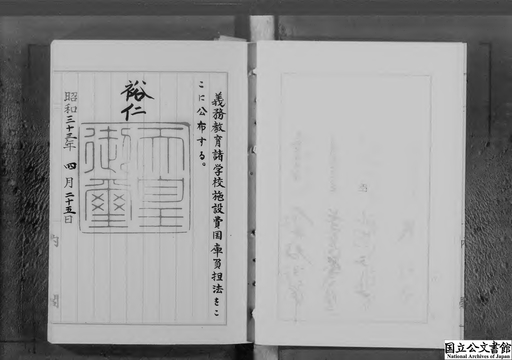 義務教育諸学校施設費国庫負担法をこ
こに公布する。
裕仁
天皇御璽
昭和三十三年四月二十五日
国立公文書館
National Archives of Japan